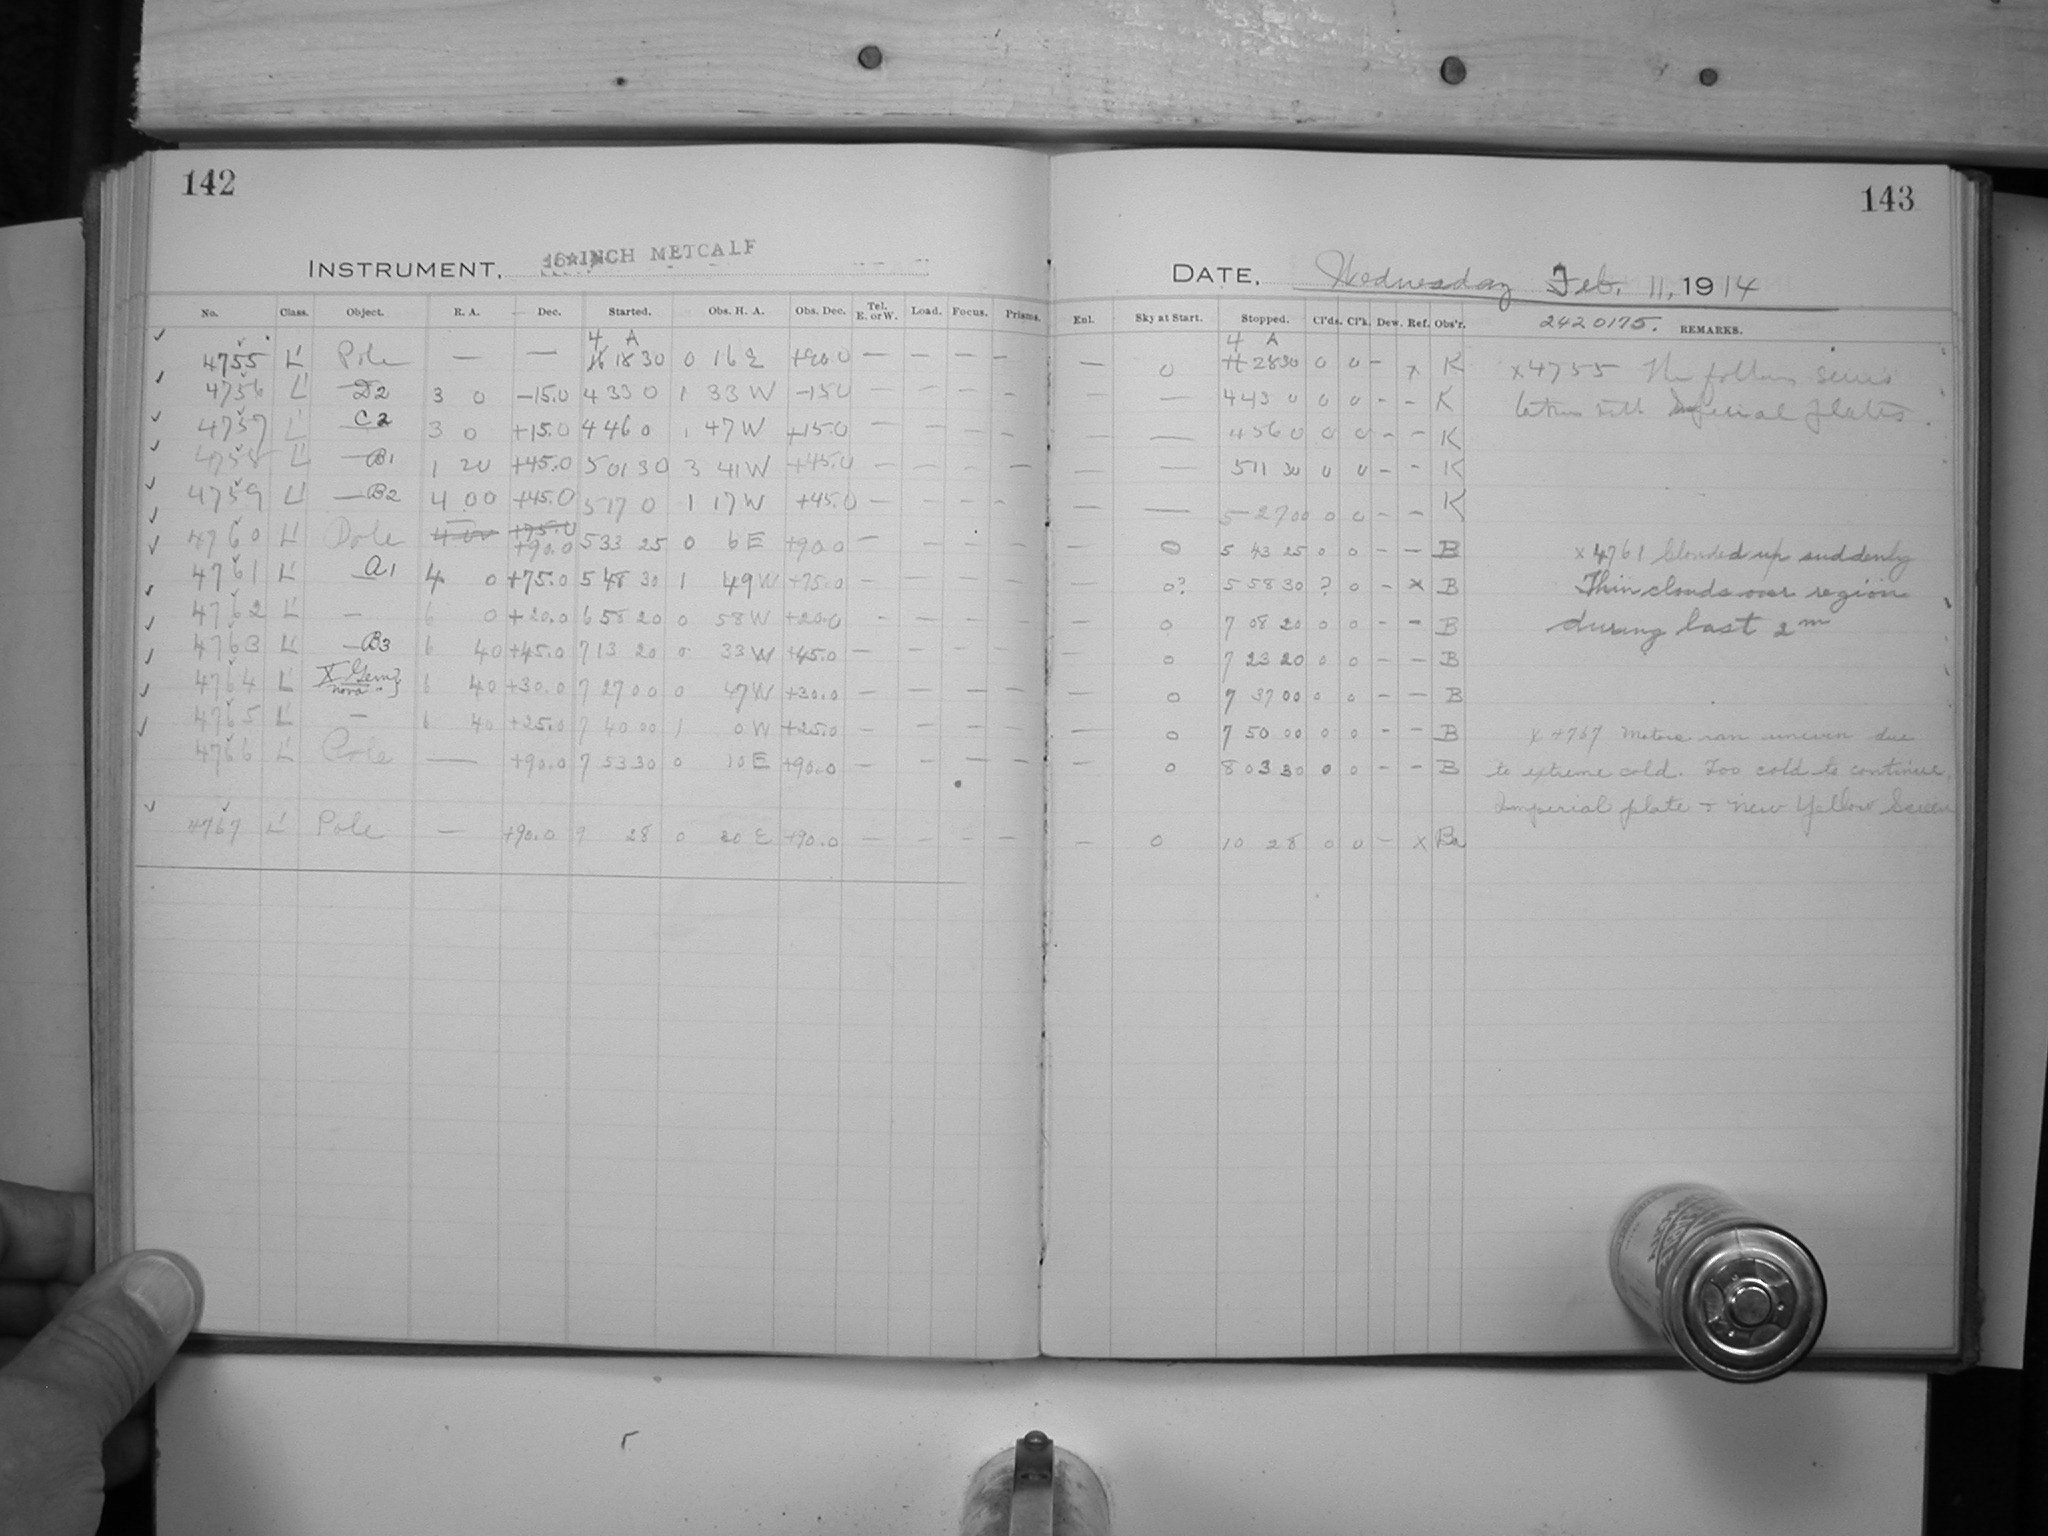 142
INSTRUMENT, 16-INCH METCALF
No. Class. Object. R. A. Dec. Started. Obs. H. A. Obs. Dec. Tel. E. or W. Load. Focus. Prisms.
4 A
4755 L' Pole — — 16 18 30 0 16 E +90.0 — — — —
4756 L' D2 3 0 -15.0 4 33 0 1 33 W -15.0 — — — —
4757 L' C2 3 0 +15.0 4 46 0 1 47 W +15.0 — — — —
4758 L' B1 1 20 +45.0 5 01 30 3 41 W +45.0 — — — —
4759 L' B2 4 00 +45.0 5 17 0 1 17 W +45.0 — — — —
+75.0
4760 L' Pole 4 00 +90.0 5 33 25 0 6 E +90.0 —
4761 L' A1 4 0 +75.0 5 48 30 1 49 W +75.0 — — — —
4762 L' — 6 0 +20.0 6 58 20 0 58 W +20.0 — — — —
4763 L' B3 6 40 +45.0 7 13 20 0 33 W +45.0 — — — —
4764 L' X Gem? nova " } 6 40 +30.0 7 27 00 0 47 W +30.0 — — — —
4765 L' — 6 40 +25.0 7 40 00 1 0 W +25.0 — — — —
4766 L' Pole — +90.0 7 53 30 0 10 E +90.0 — — — —
4767 L' Pole — +90.0 9 28 0 30 E +90.0 — — — —
143
DATE, Wednesday Feb. 11, 1914
Enl. Sky at Start. Stopped. Cl'ds. Cl'k. Dew. Ref. Obs'r. 2420175. REMARKS.
4 A
— 0 28 30 0 0 - x K x 4755 The follow series
— — 4 43 0 0 0 - - K taken with Imperial plates.
— — 4 56 0 0 0 - - K
— — 5 11 30 0 0 - - K
— — 5 27 00 0 0 - - K
— 0 5 43 25 0 0 - - B x 4761 Clouded up suddenly
— 0? 5 58 30 ? 0 - x B Thin clouds over region
— 0 7 08 20 0 0 - - B during last 2m
— 0 7 23 20 0 0 - - B
— 0 7 37 00 0 0 - - B
— 0 7 50 00 0 0 - - B x 4767 Motor ran uneven due
— 0 8 03 30 0 0 - - B to extreme cold. Too cold to continue.
Imperial plate + new Yellow Screen
— 0 10 28 0 0 - x Ba